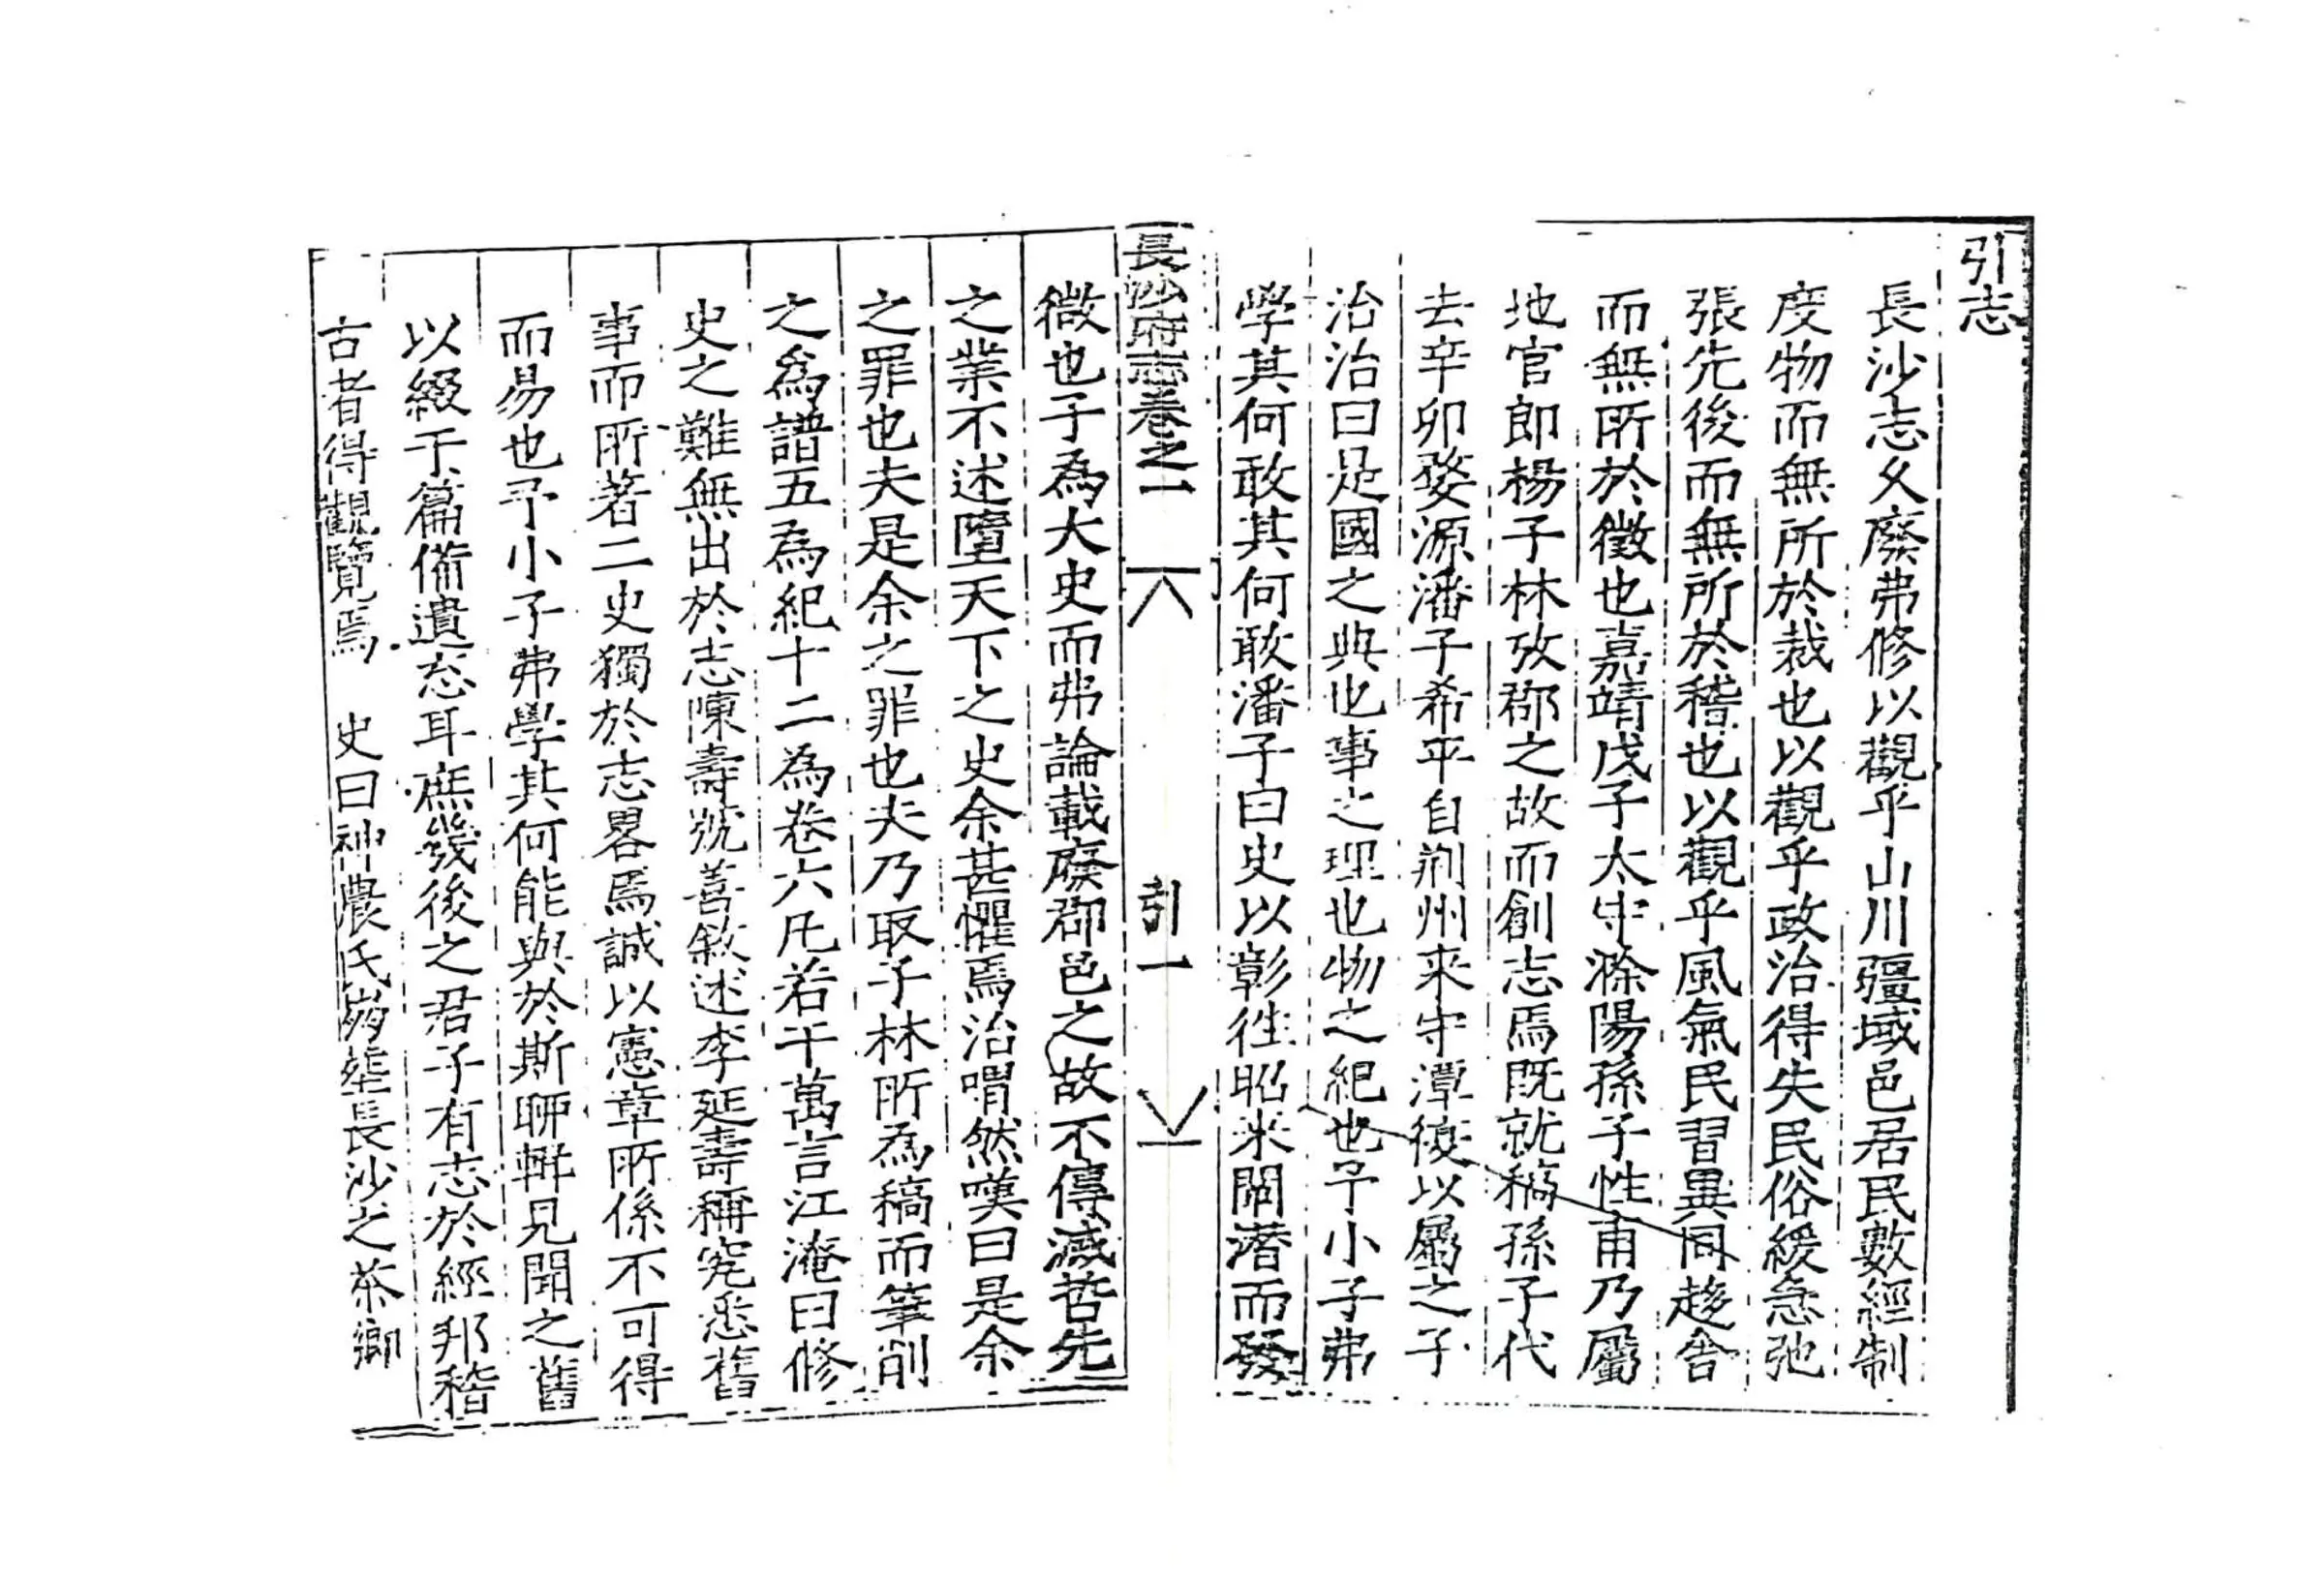 引志
長沙志久廢弗修以觀乎山川疆域邑居民數經制
度物而無所於裁也以觀乎政治得失民俗緩急弛
張先後而無所於稽也以觀乎風氣民習異同趍舍
而無所於徵也嘉靖戊子太守滁陽孫子性甫乃屬
地官郎楊子林攷郡之故而創志焉既就稿孫子代
去辛卯婺源潘子希平自荊州来守潭後以屬之子
治治曰是國之典也事之理也物之紀也予小子弗
學其何敢其何敢潘子曰史以彰徃昭来闡潜而發
長沙府志卷之一
引一
微也子為大史而弗論載廢郡邑之故不傳滅昔先
之業不述墮天下之史余甚懼焉治喟然嘆曰是余
之罪也夫是余之罪也夫乃取子林所為稿而筆削
之為譜五為紀十二為卷六凡若干萬言江淹曰修
史之難無出於志陳壽號善敘述李延壽稱究悉舊
事而所著二史獨於志畧焉誠以憲章所係不可得
而易也予小子弗學其何能與於斯聊輯見聞之舊
以綴于篇備遺忘耳庶幾後之君子有志於經邦稽
古者得觀覽焉 史曰神農氏崩塟長沙之茶鄉